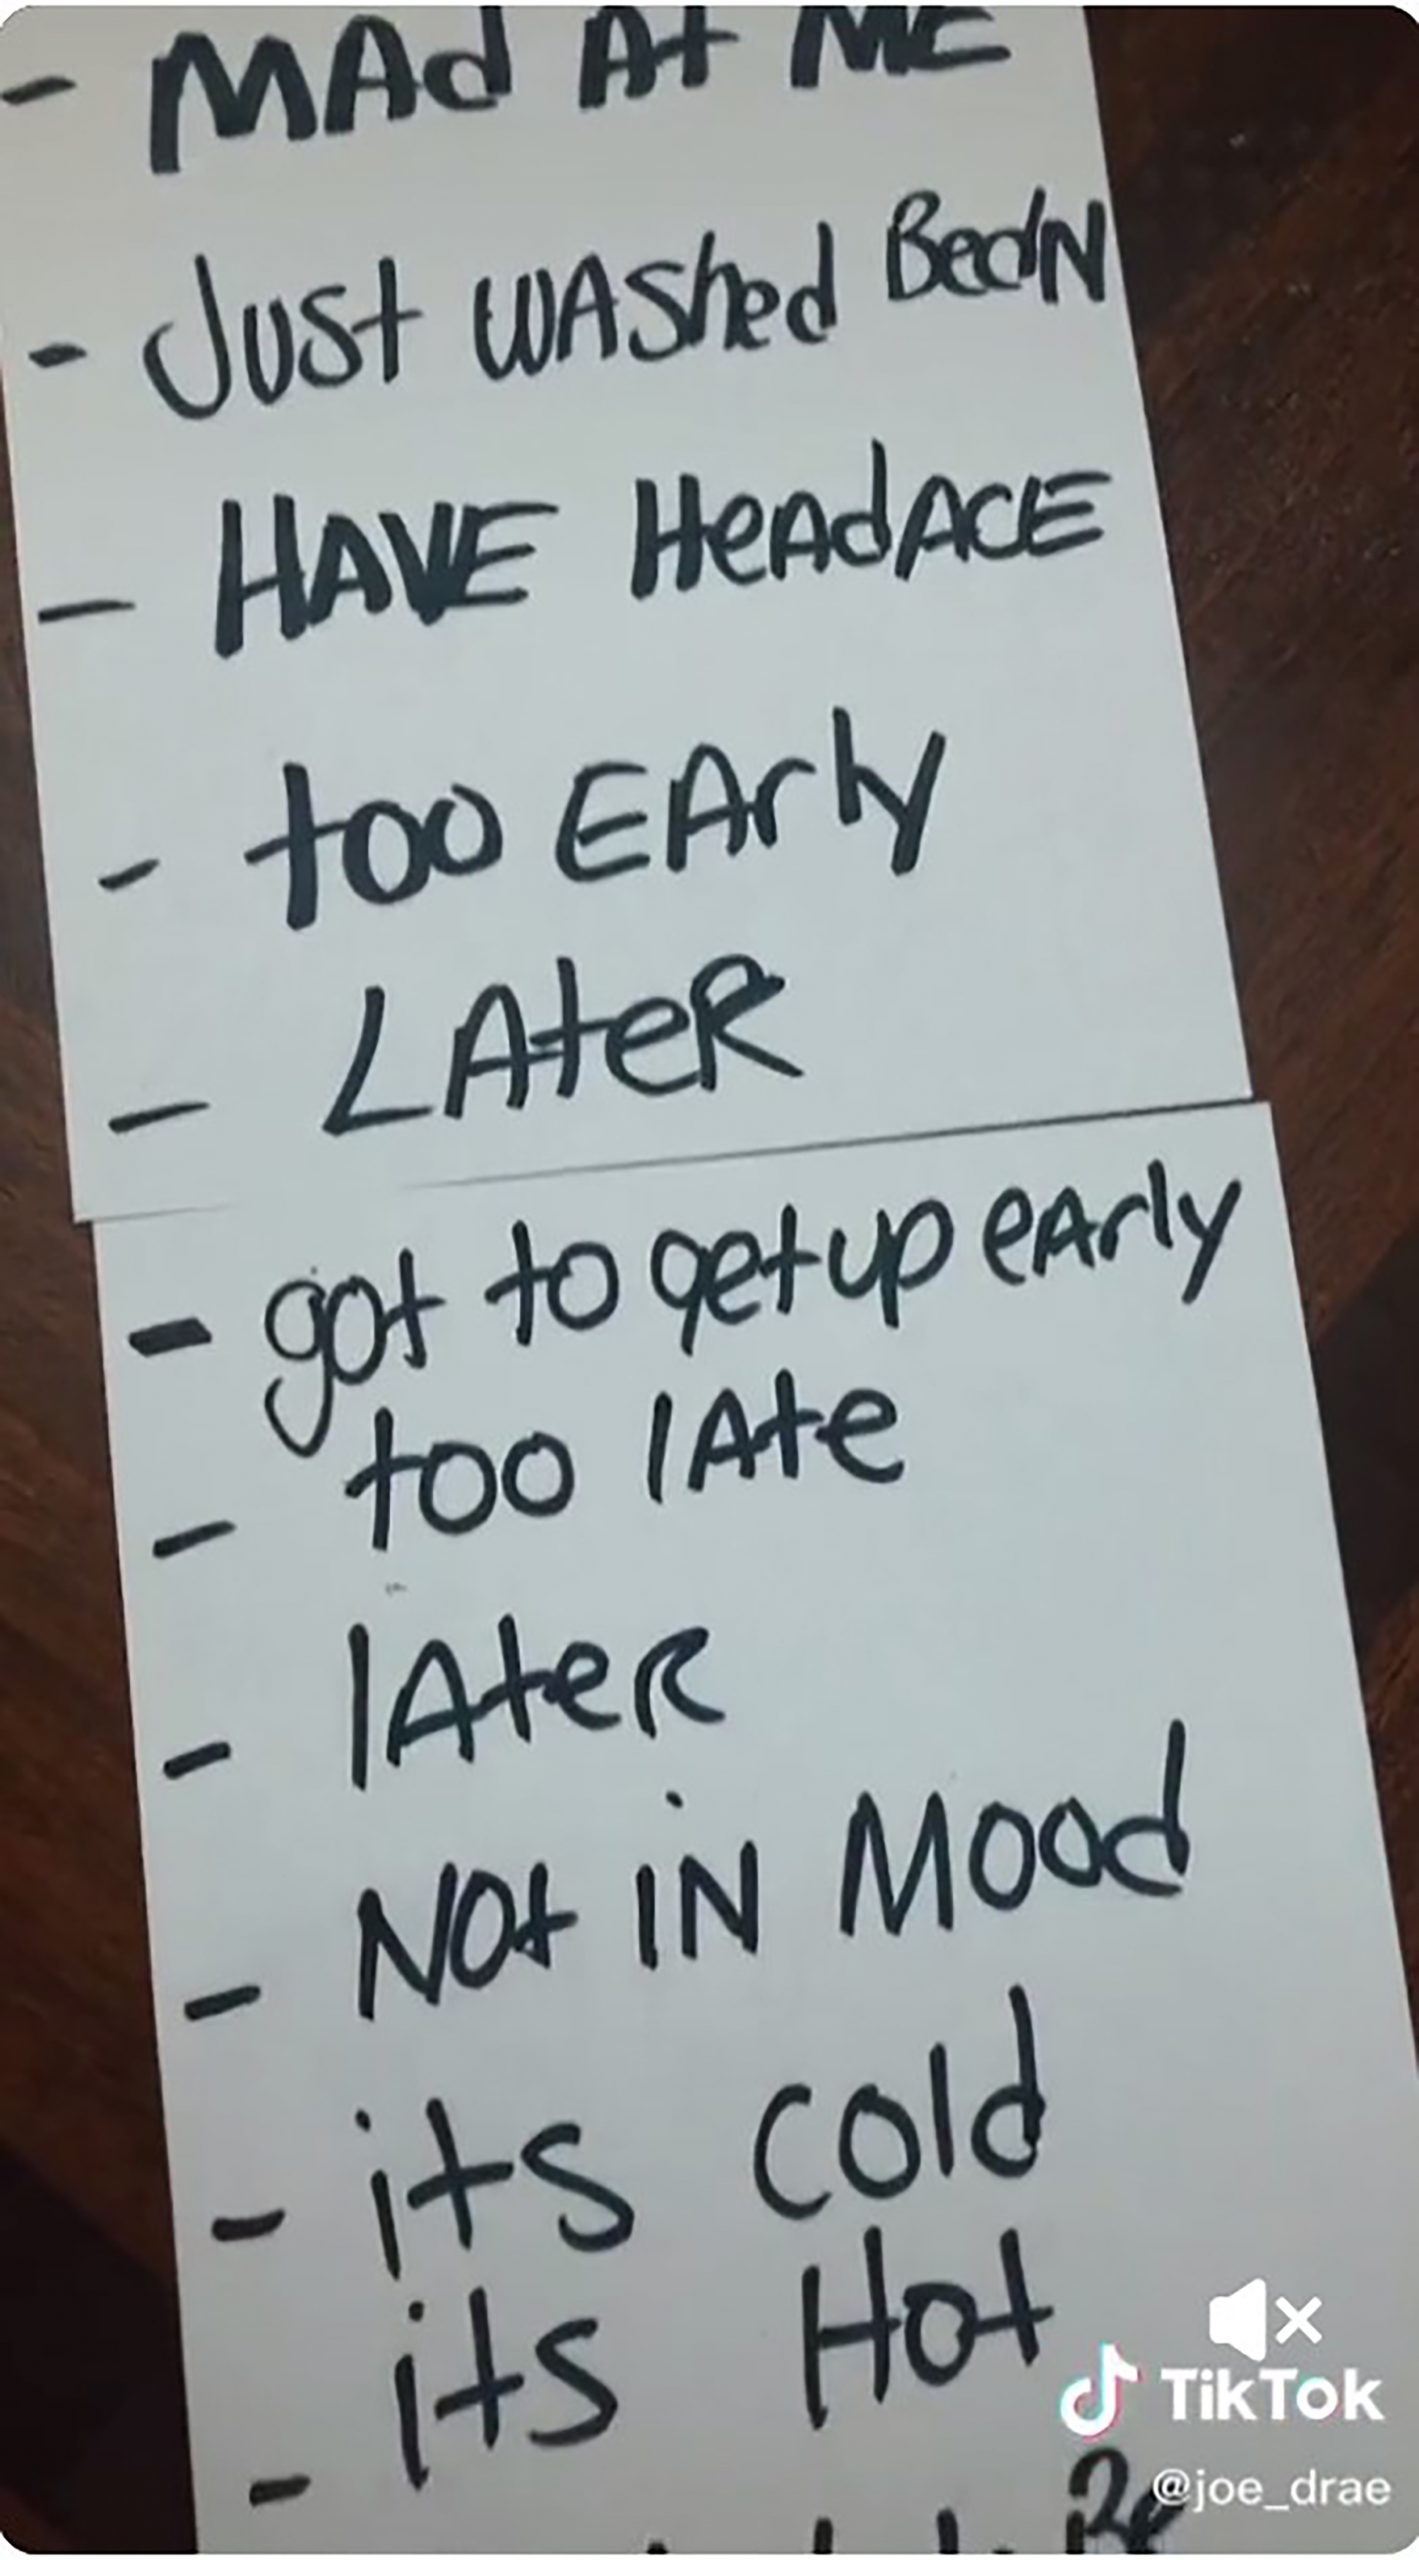 - MAd At ME
- Just WAShed BedN
- HAVE HeAdACE
- too EArly
- LAteR
- got to get up eArly
- too lAte
- lAteR
- NOt iN Mood
- its cold
- its Hot
TikTok
@joe_drae